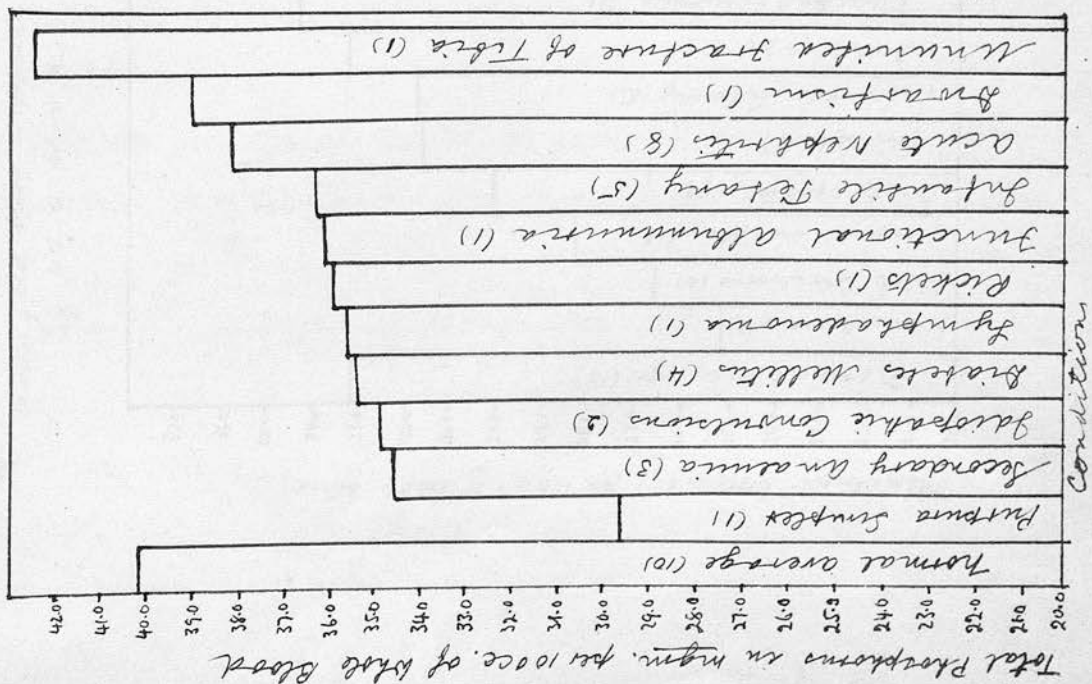 Total Phosphorus in mgm. per 100cc. of Whole Blood
20.0 21.0 22.0 23.0 24.0 25.0 26.0 27.0 28.0 29.0 30.0 31.0 32.0 33.0 34.0 35.0 36.0 37.0 38.0 39.0 40.0 41.0 42.0
Conditions
Normal average (10)
Purpura Simplex (1)
Secondary Anaemia (3)
Idiopathic Convulsions (2)
Diabetes Mellitus (4)
Lymphadenoma (1)
Rickets (1)
Functional albuminuria (1)
Infantile Tetany (5)
Acute Nephritis (8)
Dwarfism (1)
Ununited fracture of Tibia (1)